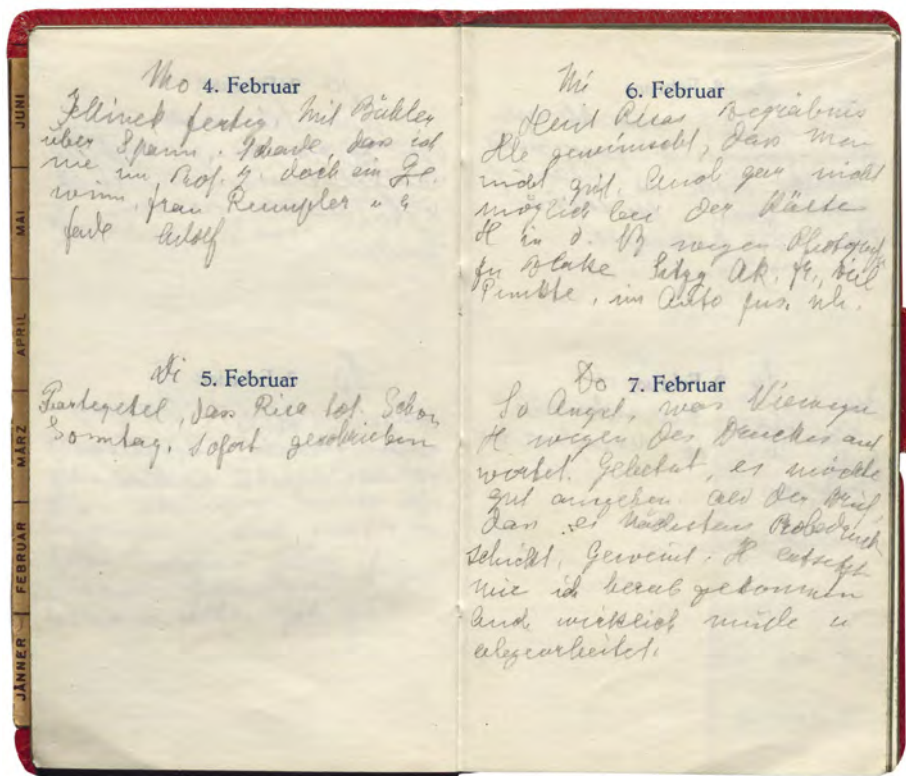 Mo 4. Februar
Jellinek fertig. Mit Bühler
über Spann. Schade dass ich
nie im Prof. Z. doch ein Ge
winn. Frau Rumpler u
Adolf
Di 5. Februar
Partezettel, dass Risa tot. Schon
Sonntag. Sofort geschrieben
Mi 6. Februar
Heut Risas Begräbnis
Alle gewünscht, dass man
nicht geht. Auch gar nicht
möglich bei der Kälte
H in d. wegen Photograph
zu Blake Sitzg Ak. viel
Punkte, im Auto zus.
Do 7. Februar
So Angst, was Vieweg
H wegen des Druckes ant
wortet. Gebetet, es möchte
gut ausgehen. Als der Brief,
dass es nächstens Probedruck
schickt, Geweint. H entsetzt
wie ich herab gekommen
Und wirklich müde u
abgearbeitet.
JÄNNER
FEBRUAR
MÄRZ
APRIL
MAI
JUNI